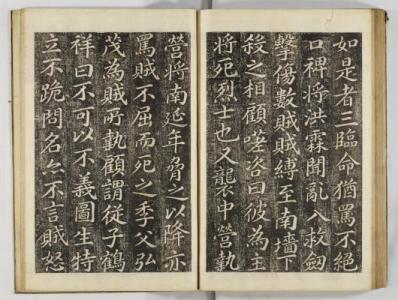 如是者三臨命猶罵不絕
口裨將洪霖聞亂入救劒
擊傷數賊賊縛至南墻下
殺之相顧嗟咨曰彼為主
將死烈士也又襲中營執
營將南延年脅之以降亦
罵賊不屈而死之季父弘
茂為賊所執顧謂從子鶴
祥曰不可以不義圖生特
立不跪問名亦不言賊怒